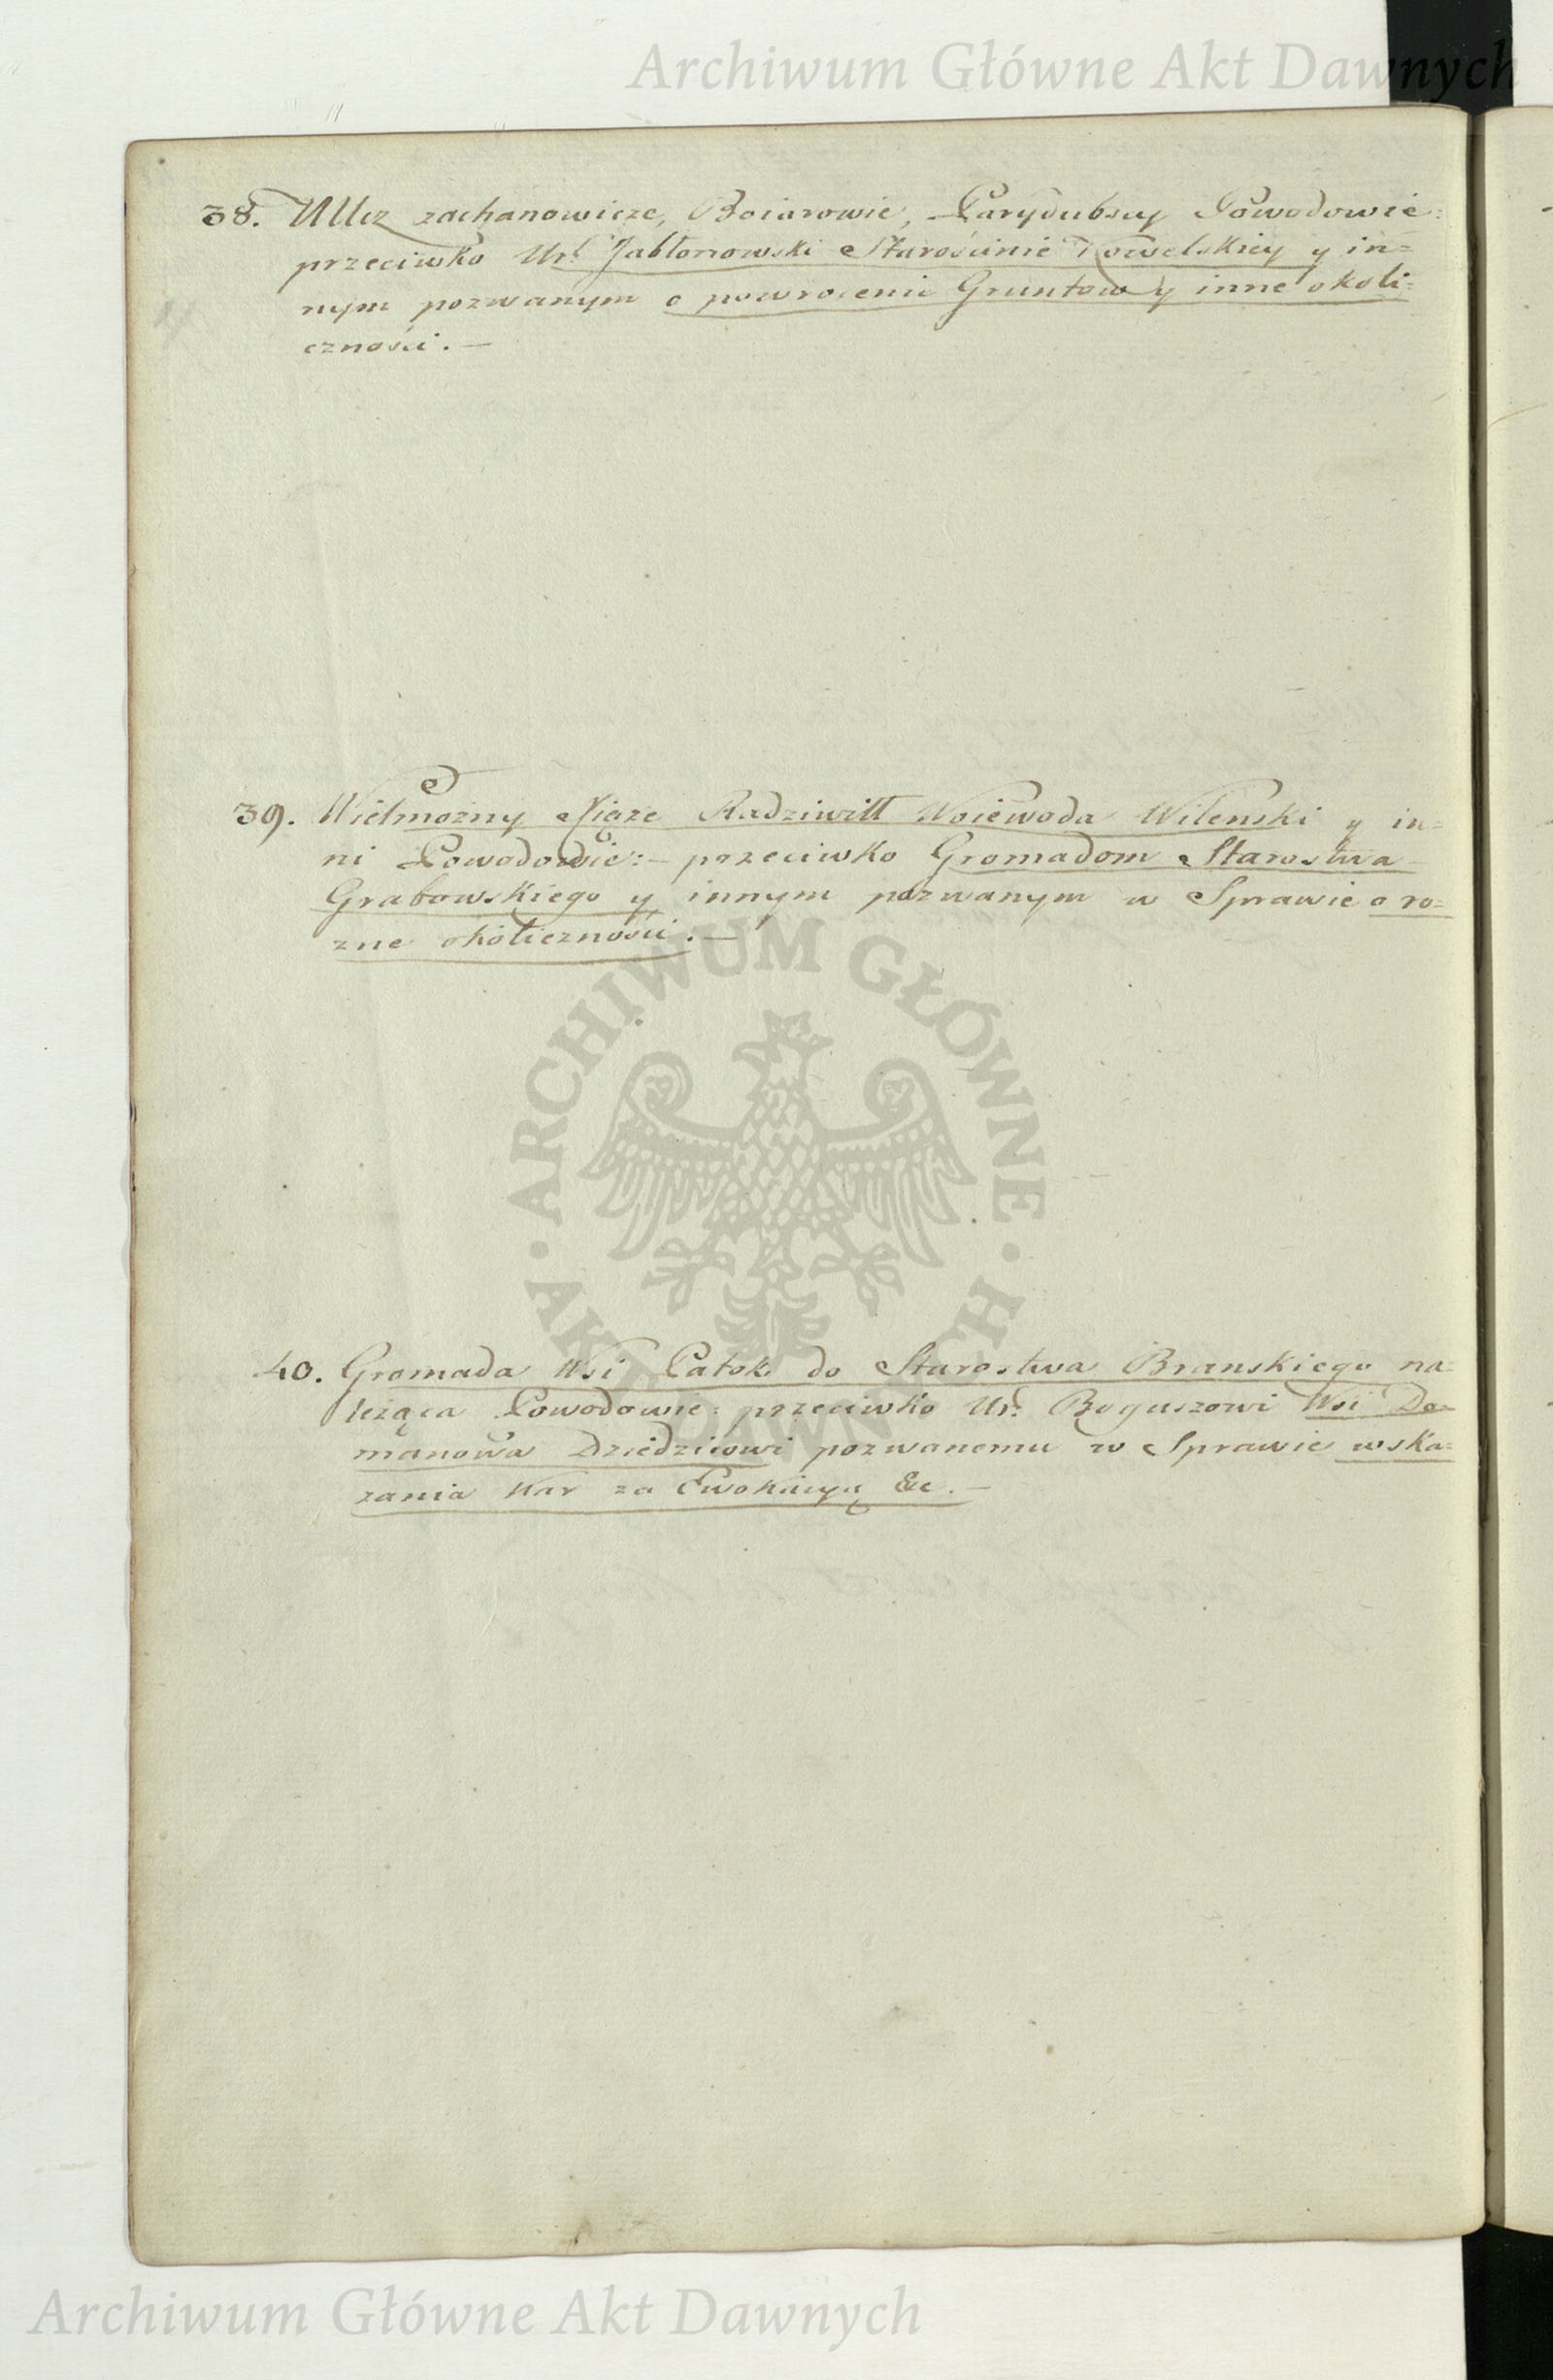 Archiwum Główne Akt Dawnych
38. Ulez zachanowicze, Boiarowie, Parydubscy Powodowie:
przeciwko Ur: Jabłonowski Starościnie Kowelskiey y in=
nym pozwanym o powrocenie Gruntow y inne okoli=
czności. —
39. Wielmozny Xiąze Radziwiłł Woiewoda Wilenski y in=
ni Powodowie: — przeciwko Gromadom Starostwa
Grabowskiego y innym pozwanym w Sprawie o ro=
zne okoliczności. —
ARCHIWUM GŁÓWNE AKT DAWNYCH
40. Gromada Wsi Patok do Starostwa Branskiego na=
leząca Powodowie: przeciwko Ur: Boguszowi Wsi Do=
manowa Dziedzicowi pozwanemu w Sprawie wska=
zania Kar za Ewokacyą &c. —
Archiwum Główne Akt Dawnych